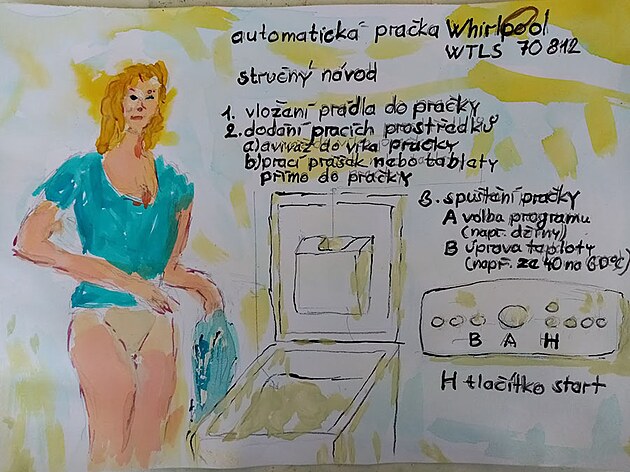 automatická pračka Whirlpool
WTLS 70812
stručný návod
1. vložaní pradla do pračky
2. dodání pracích prostředků
a) avivaž do vika pračky
b) prací prašak nebo tablaty
přimo do pračky
3. spuštaní pračky
A volba programu
(např. džíny)
B úprava taploty
(např. ze 40 na 60°C)
B A H
H tlačítko start